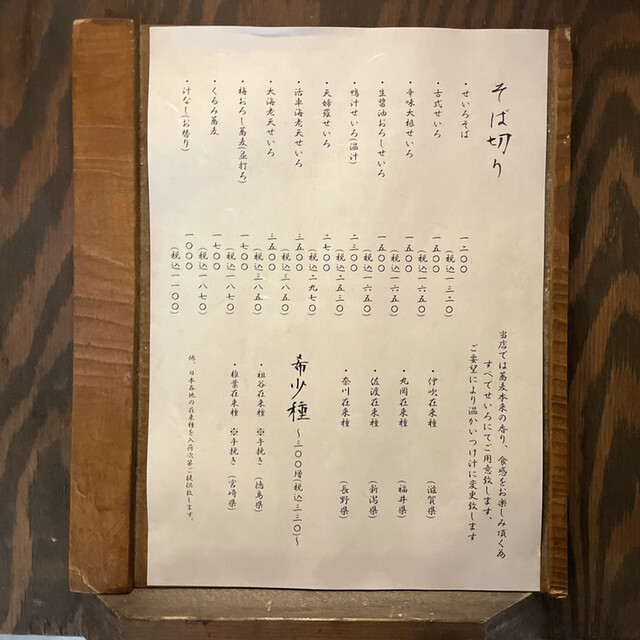 そば切り
・せいろそば
一二〇〇
(税込一三二〇)
・古式せいろ
一五〇〇
(税込一六五〇)
・辛味大根せいろ
一五〇〇
(税込一六五〇)
・生醬油おろしせいろ
一五〇〇
(税込一六五〇)
・鴨汁せいろ(温汁)
二三〇〇
(税込二五三〇)
・天婦羅せいろ
二七〇〇
(税込二九七〇)
・活車海老天せいろ
三五〇〇
(税込三八五〇)
・大海老天せいろ
三五〇〇
(税込三八五〇)
・梅おろし蕎麦(並打ろ)
一七〇〇
(税込一八七〇)
・くるみ蕎麦
一七〇〇
(税込一八七〇)
・汁なし(お替り)
一〇〇〇
(税込一一〇〇)
当店では蕎麦本来の香り、食感をお楽しみ頂く為
すべてせいろにてご用意致します。
ご要望により温かいつけ汁に変更致します
・伊吹在来種 (滋賀県)
・丸岡在来種 (福井県)
・佐渡在来種 (新潟県)
・奈川在来種 (長野県)
希少種 ～三〇〇増(税込三三〇)～
・祖谷在来種 ※手挽き (徳島県)
・椎葉在来種 ※手挽き (宮崎県)
他、日本各地の在来種を入荷次第ご提供致します。